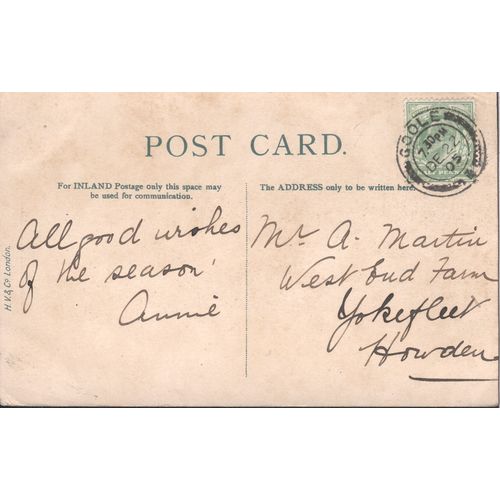 POST CARD.
For INLAND Postage only this space may
be used for communication.
The ADDRESS only to be written here.
GOOLE
7.30PM
DE 22
05
All good wishes
of the season'
Annie
Mr. A. Martin
West End Farm
Yokefleet
Howden
H.V.& Co London.